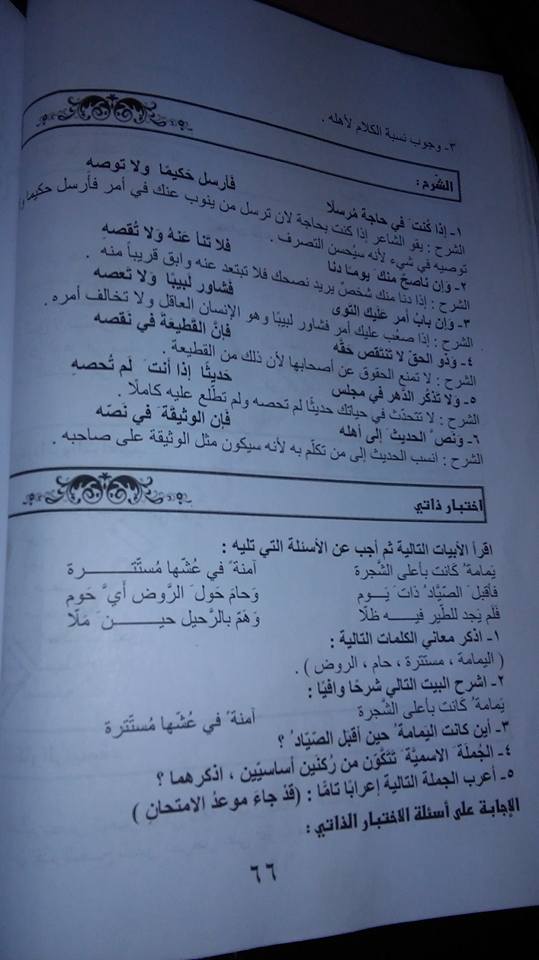 ٣- وجوب نسبة الكلام لأهله .
الشرح :
١- إذا كنتَ في حاجة مُرسلًا فأرسل حَكيمًا ولا توصه
الشرح : يقو الشاعر إذا كنت بحاجة لان ترسل من ينوب عنك في أمر فأرسل حكيما و
توصيه في شيء لأنه سيُحسن التصرف .
٢- وَإن ناصحٌ منكَ يومنا دنا فلا تنأ عَنهُ وَلا تُقصه
الشرح : إذا دنا منك شخصٌ يريد نصحك فلا تبتعد عنه وابق قريباً منه .
٣- وإن بابُ أمر عَليك التوى فشاور لبيبًا وَلا تَعصه
الشرح : إذا صَعُب عليك أمر فشاور لبيبًا وهو الإنسان العاقل ولا تخالف أمره .
٤- وَذو الحقّ لا تنتقص حقَّه فإنَّ القطيعَةَ في نَقصه
الشرح : لا تمنع الحقوق عن أصحابها لأن ذلك من القطيعة .
٥- وَلا تذكُر الدَّهرَ في مجلس حَديثًا إذا أنتَ لَم تُحصه
الشرح : لا تتحدّث في حياتك حديثًا لم تحصه ولم تطّلع عليه كاملًا .
٦- ونصَّ الحديثَ إلى أهله فإن الوثيقةَ في نصّه
الشرح : انسب الحديث إلى من تكلّم به لأنه سيكون مثل الوثيقة على صاحبه .
اختبار ذاتي
اقرأ الأبيات التالية ثم أجب عن الأسئلة التي تليه :
يَمامةٌ كَانت بأعلى الشَّجرة آمنةً في عُشّها مُستَترة
فأقبلَ الصّيّادُ ذاتَ يَوم وَحامَ حَولَ الرَّوض أيَّ حَوم
فَلم يَجد للطّير فيه ظلّا وَهَمّ بالرَّحيل حينَ مَلّا
١- اذكر معاني الكلمات التالية :
( اليمامة ، مستترة ، حام ، الروض ) .
٢- اشرح البيت التالي شرحًا وافيًا :
يَمامةٌ كَانت بأعلى الشَّجرة آمنةً في عُشّها مُستَترة
٣- أين كانت اليمامةُ حين أقبَل الصّيّادُ ؟
٤- الجُملَةَ الاسميَّةَ تَتَكَّون من رُكنَين أساسيّين ، اذكرهما ؟
٥- أعرب الجملة التالية إعرابًا تامًّا : ( قَدْ جاءَ موعدُ الامتحانِ )
الإجابة على أسئلة الاختبار الذاتي :
٦٦